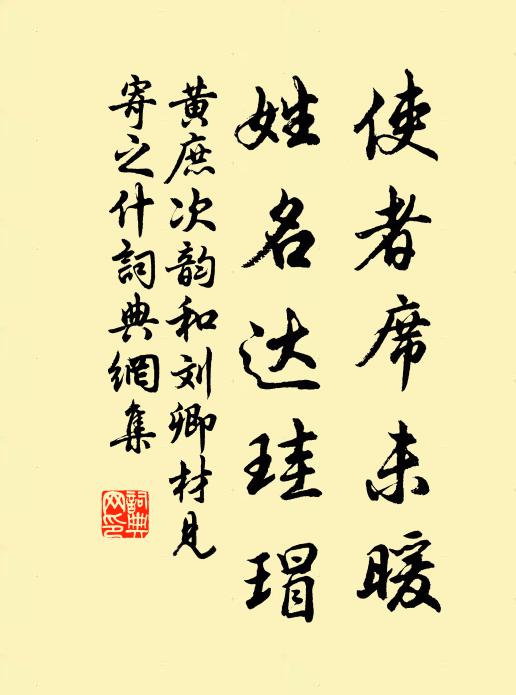 使者席未暖
姓名达珪瑁
黄庶次韵和刘卿材见
寄之什詞典網集
詞典
网印